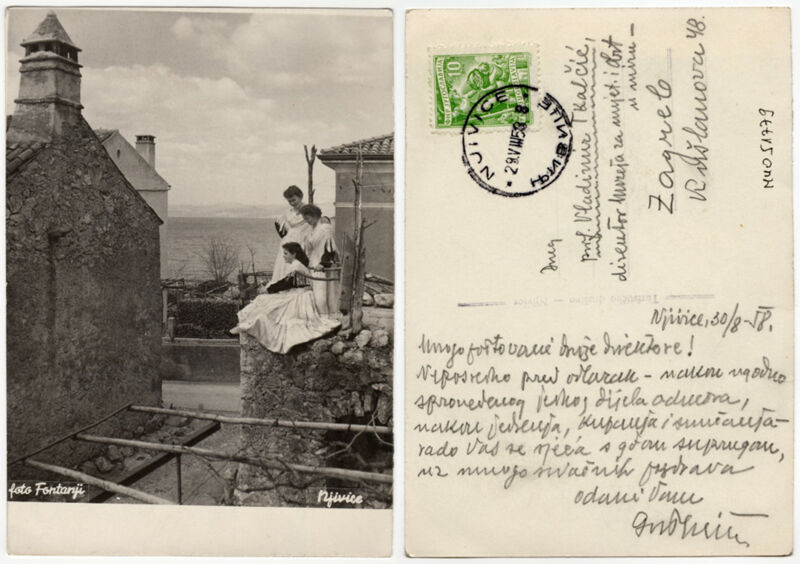 foto Fontanji
Njivice
10
NJIVICE
29.VIII.58-8
ЊИВИЦЕ
Drug
prof. Vladimir Tkalčić,
direktor Muzeja za umjet. i obrt
u miru -
Zagreb
Ruđ
48.
NUO51779
Turističko društvo - Njivice
Njivice, 30/8-58.
Mnogopoštovani druže direktore!
Neposredno pred odlazak - nakon ugodno
sprovedenog dijela odmora,
nakon jedrenja, kupanja i sunčanja
rado Vas se sjeća s gđom suprugom,
uz mnogo srdačnih pozdrava
odani Vam